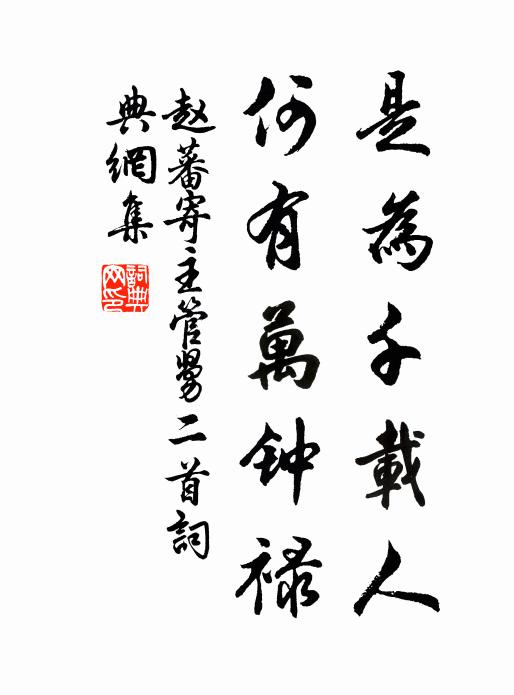 是為千載人
何有萬钟禄
赵蕃寄主管舅二首詞
典網集
詞典网印